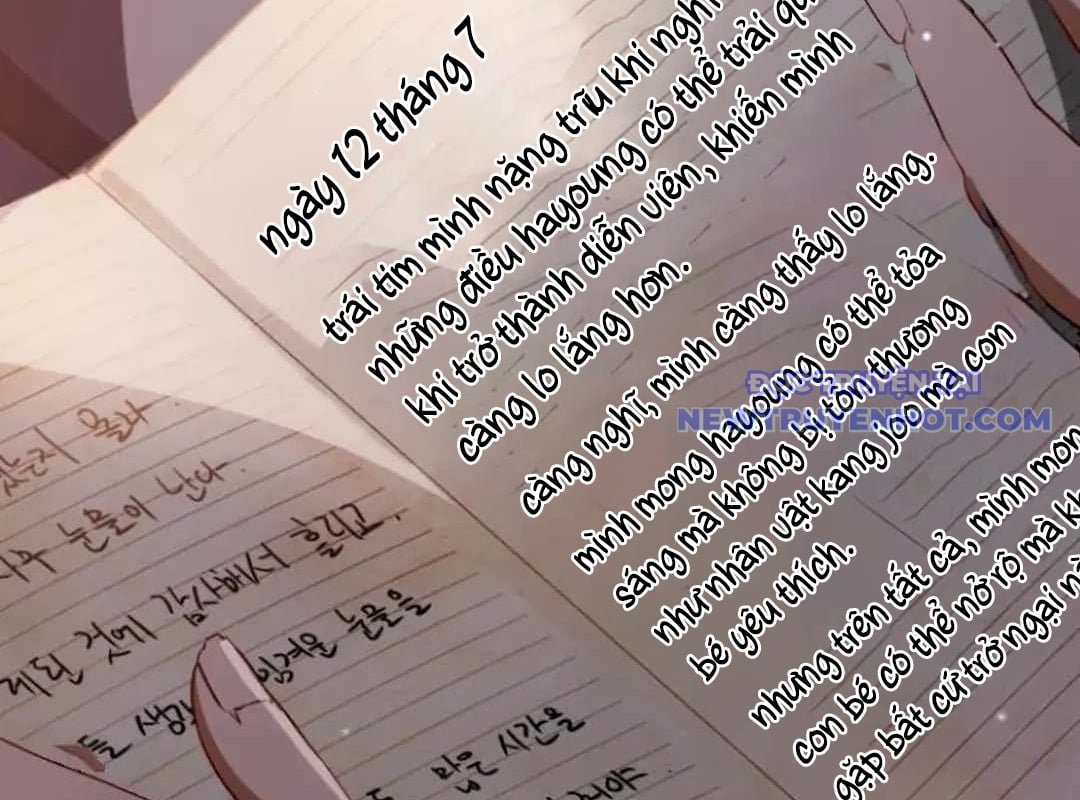 ngày 12 tháng 7
trái tim mình nặng trĩu khi nghĩ
những điều hayoung có thể trải qua
khi trở thành diễn viên, khiến mình
càng lo lắng hơn.
càng nghĩ, mình càng thấy lo lắng.
mình mong hayoung có thể tỏa
sáng mà không bị tổn thương
như nhân vật kang joo mà con
bé yêu thích.
nhưng trên tất cả, mình mong
con bé có thể nở rộ mà
gặp bất cứ trở ngại
ĐỌC TRUYỆN TẠI
NEWTRUYENHOT.COM
몰라
눈물이 난다.
것에 감사해서 흘리고,
눈물을
들
맑은 시간을